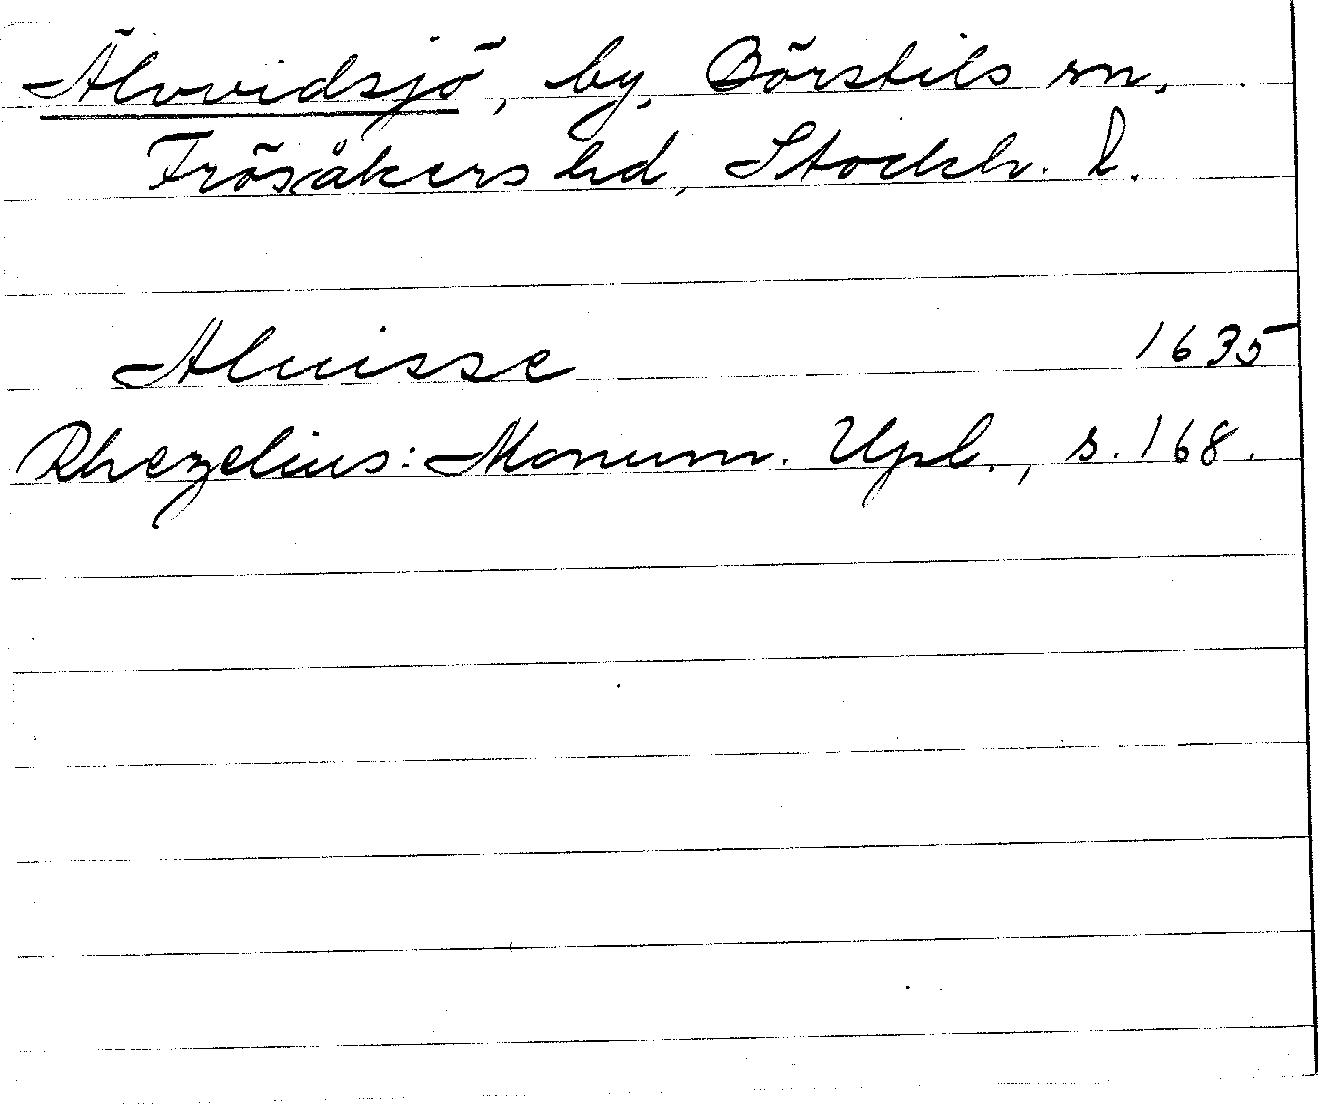 Älvvidsjö, by, Börstils sn,
Frösåkers hd, Stockh. l.
Aluisse 1635
Rhezelius: Monum. Upl., s. 168.